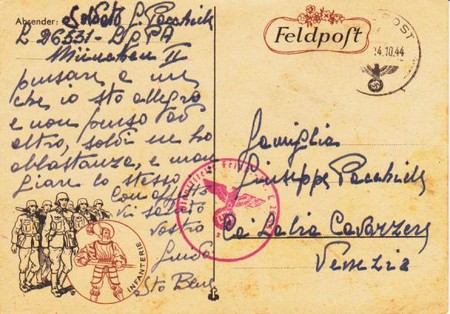 Absender: Soldato
L 26531 - LGPA
München II
pensare a me
che io sto allegro
e non penso ad
altro, soldi ne ho
abbastanza, e man
giare lo stesso
Con affetto
Vi saluto
vostro
Guido
Sto Bene
INFANTERIE
Feldpost
24.10.44
Famiglia
Giuseppe
Ca Labia Cavarzere
Venezia